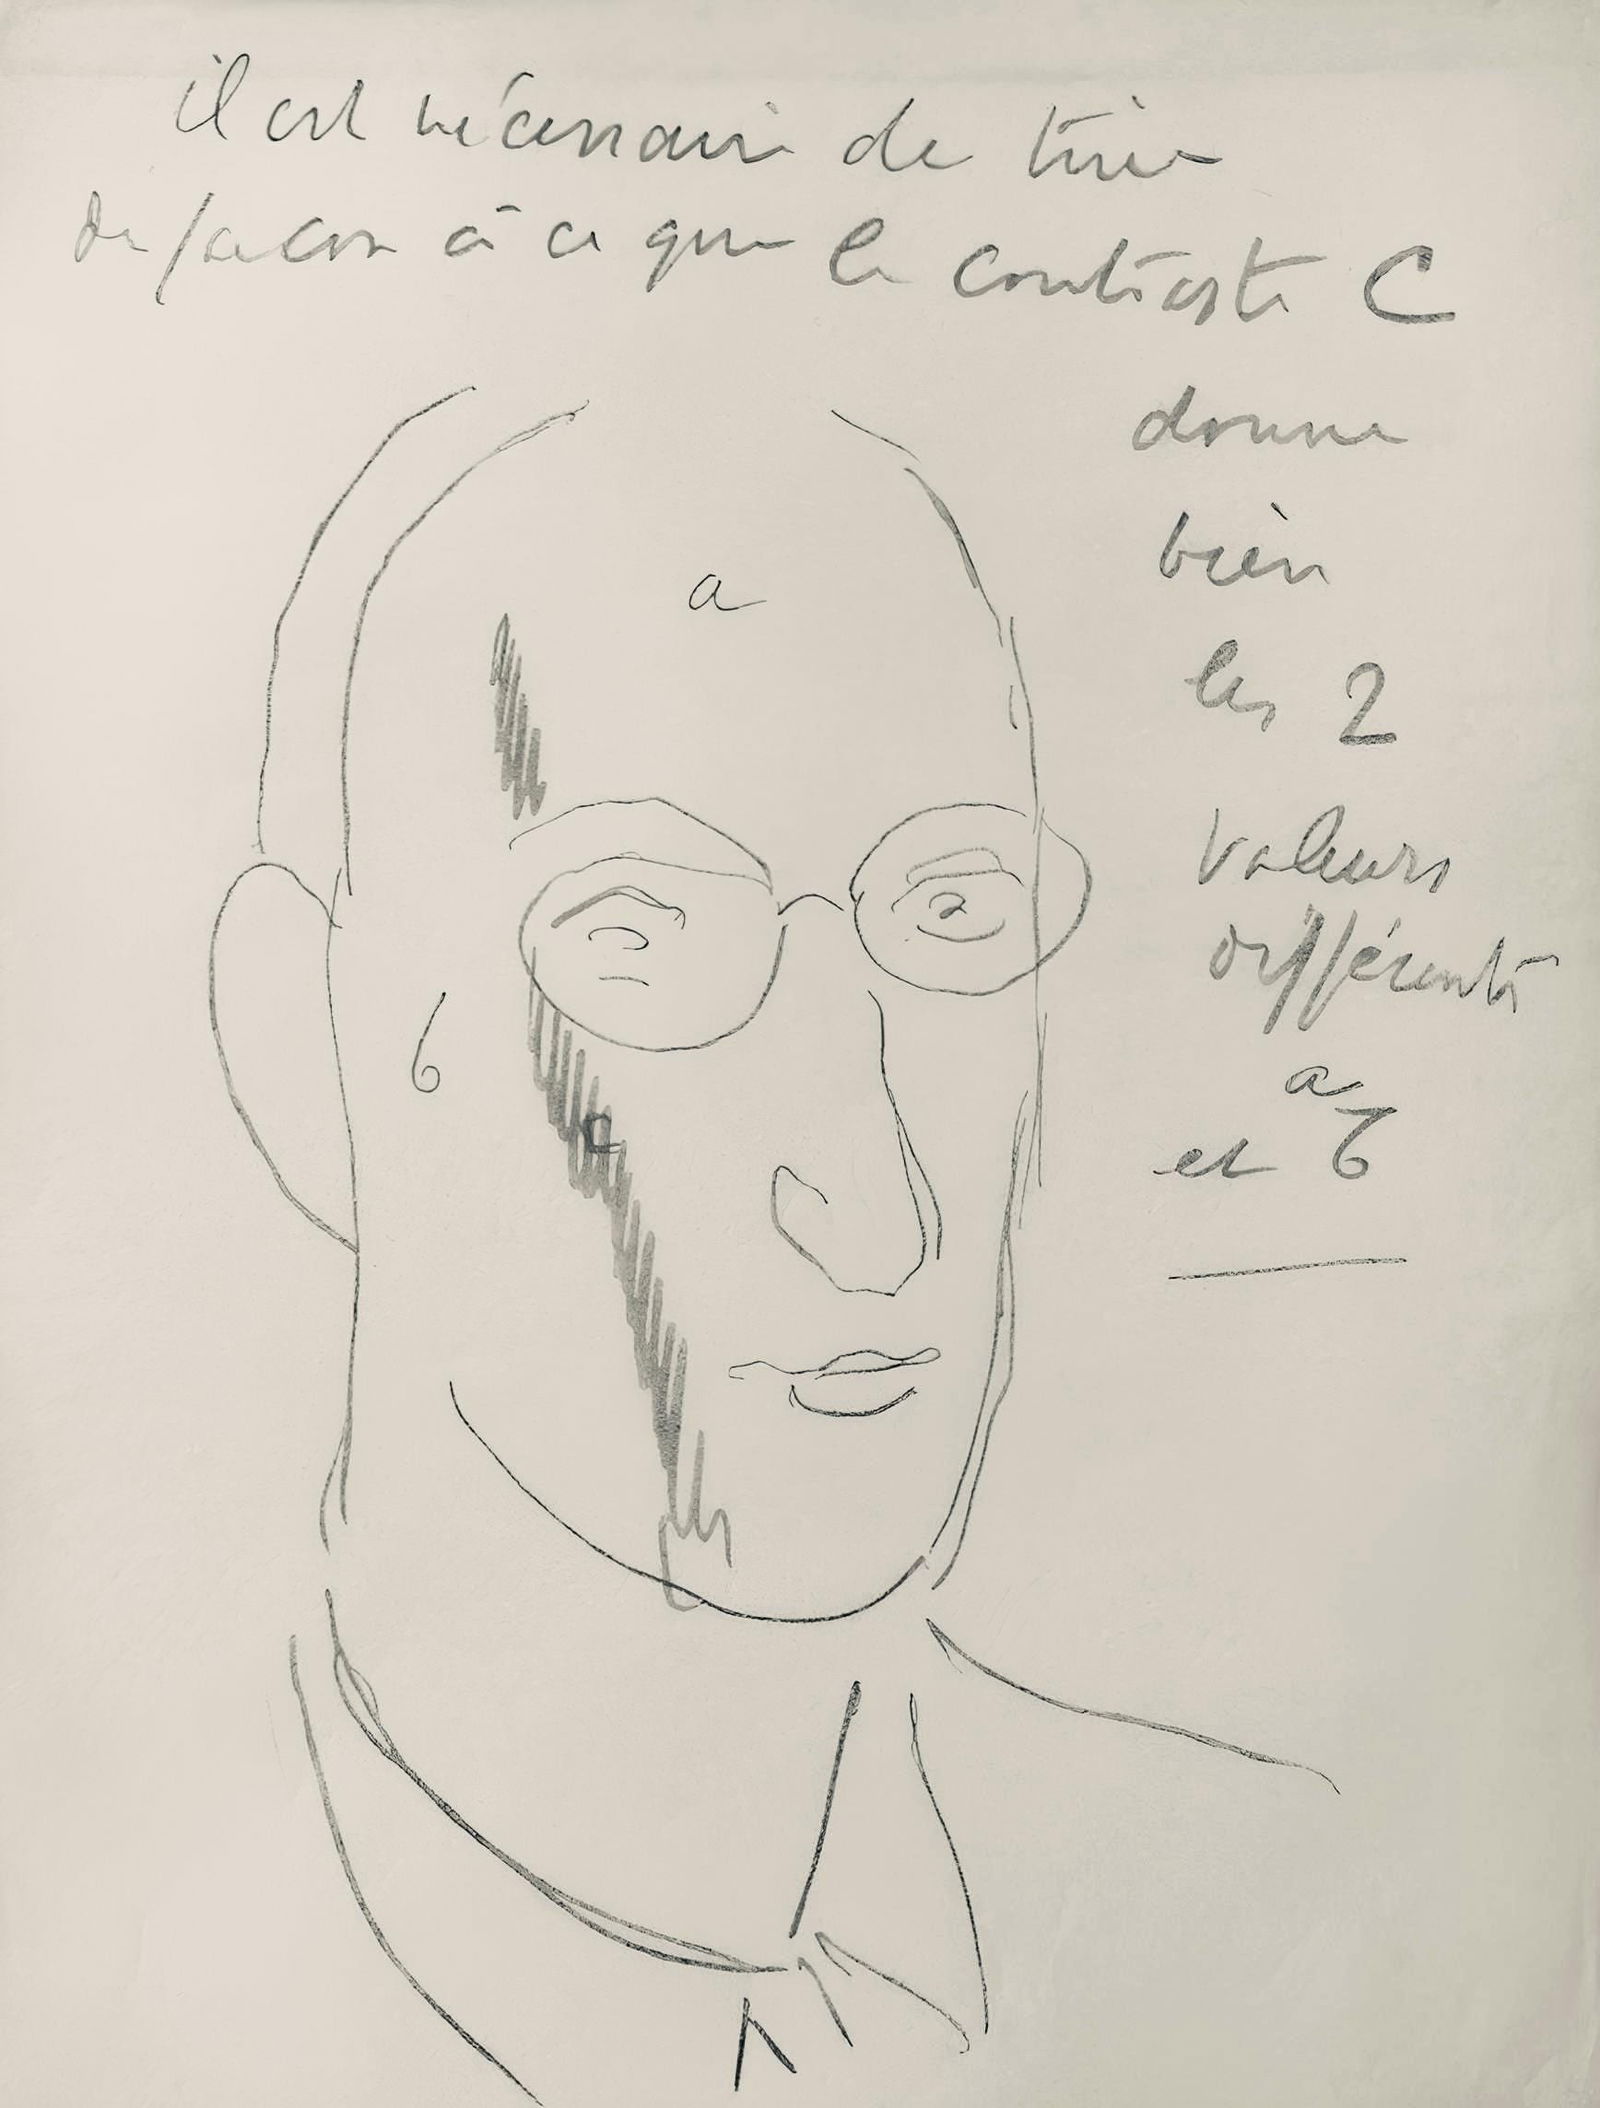 il est nécessaire de tirer
de façon à ce que le contraste C
donne
bien
les 2
valeurs
différentes
a
et b
a
b
c